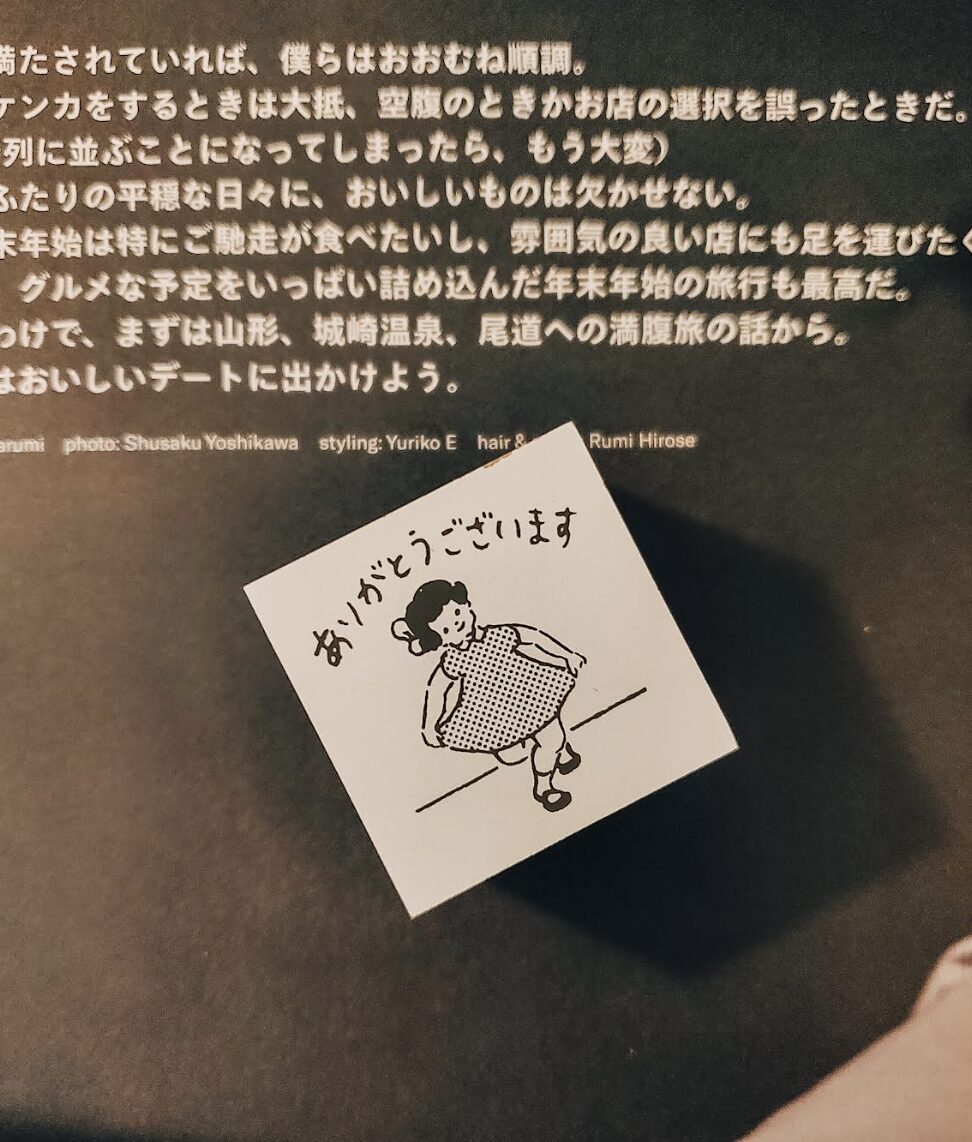 満たされていれば、僕らはおおむね順調。
ケンカをするときは大抵、空腹のときかお店の選択を誤ったときだ。
列に並ぶことになってしまったら、もう大変）
ふたりの平穏な日々に、おいしいものは欠かせない。
末年始は特にご馳走が食べたいし、雰囲気の良い店にも足を運びたく
グルメな予定をいっぱい詰め込んだ年末年始の旅行も最高だ。
わけで、まずは山形、城崎温泉、尾道への満腹旅の話から。
はおいしいデートに出かけよう。
arumi photo: Shusaku Yoshikawa styling: Yuriko E hair & Rumi Hirose
ありがとうございます